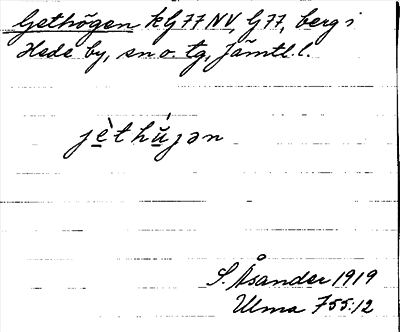 Gethögen kG77NV, G77, berg i
Hede by, sn o. tg, Jämtl. l.
jèthújən
S. Åsander 1919
Ulma 755:12